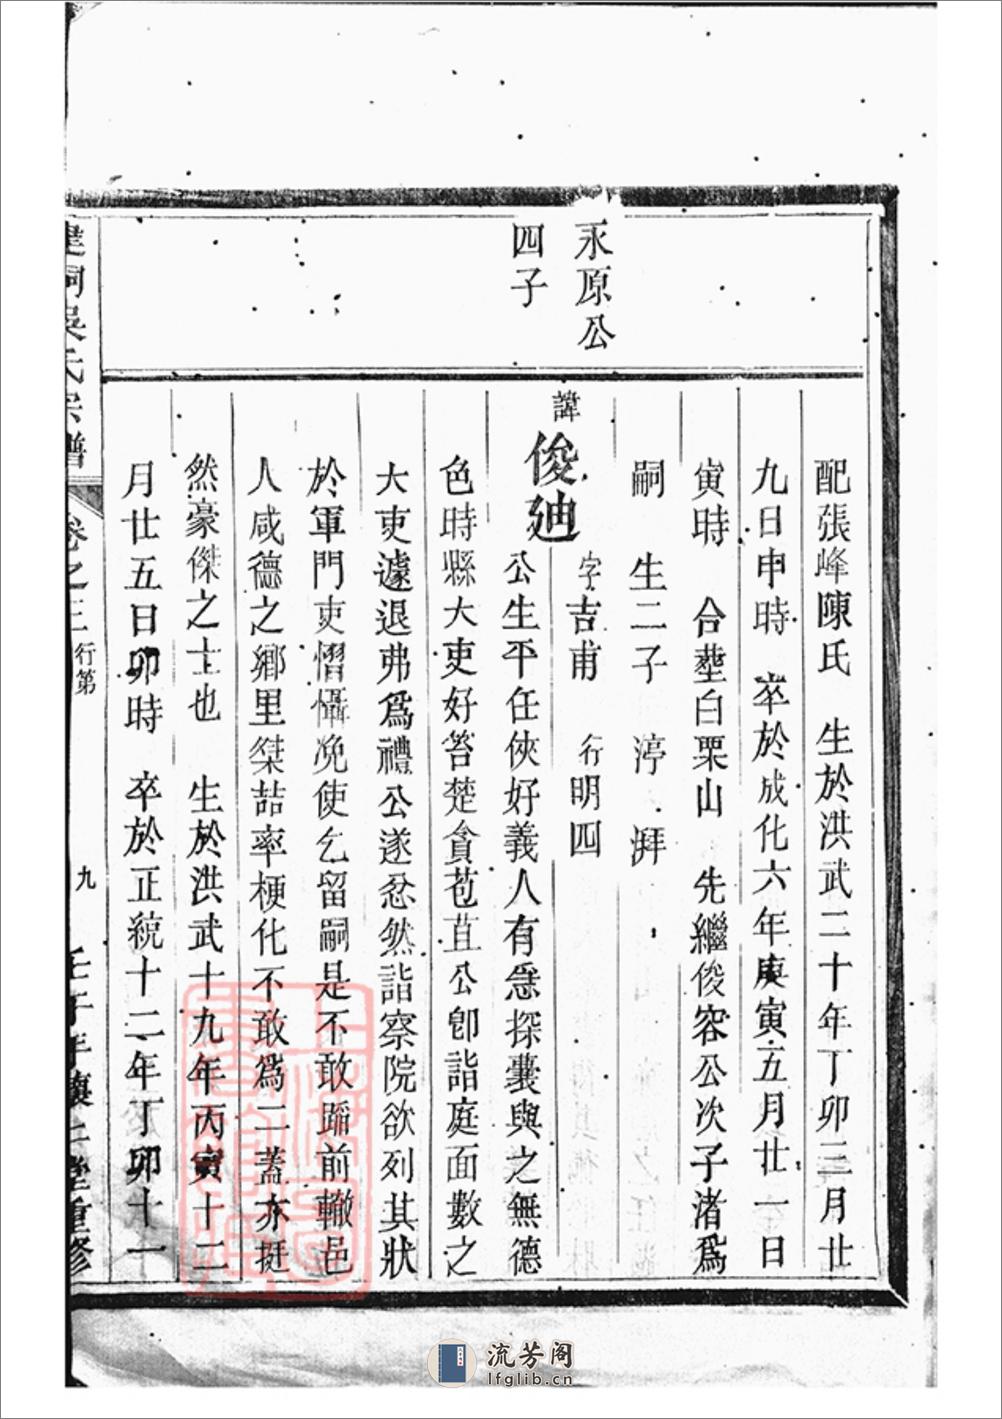 永原公
四子
配張峰陳氏　生於洪武二十年丁卯三月廿
九日申時　卒於成化六年庚寅五月廿一日
寅時　合塟白栗山　先繼俊容公次子渚爲
嗣　生二子　渟　湃
諱俊廸　字吉甫　行明四
公生平任俠好義人有急探囊與之無德
色時縣大吏好笞楚貪苞苴公卽詣庭面數之
大吏遽退弗爲禮公遂忿然詣察院欲列其狀
於軍門吏慴懾浼使乞留嗣是不敢踵前轍邑
人咸德之鄉里桀詰率梗化不敢爲二蓋亦挺
然豪傑之士也　生於洪武十九年丙寅十二
月廿五日卯時　卒於正統十二年丁卯十一
吳氏宗譜　卷之三　行第　九　壬子年　重修
流芳阁
lfglib.cn